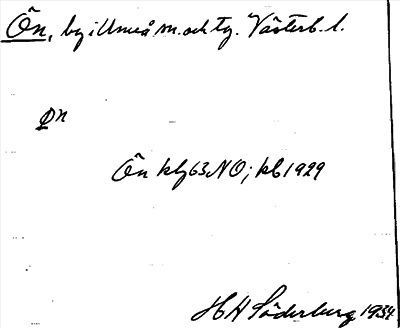 Ön, by i Umeå sn. och tg. Västerb. l.
Ön kbl 63 NO; kb 1929
H H Söderburg 1934